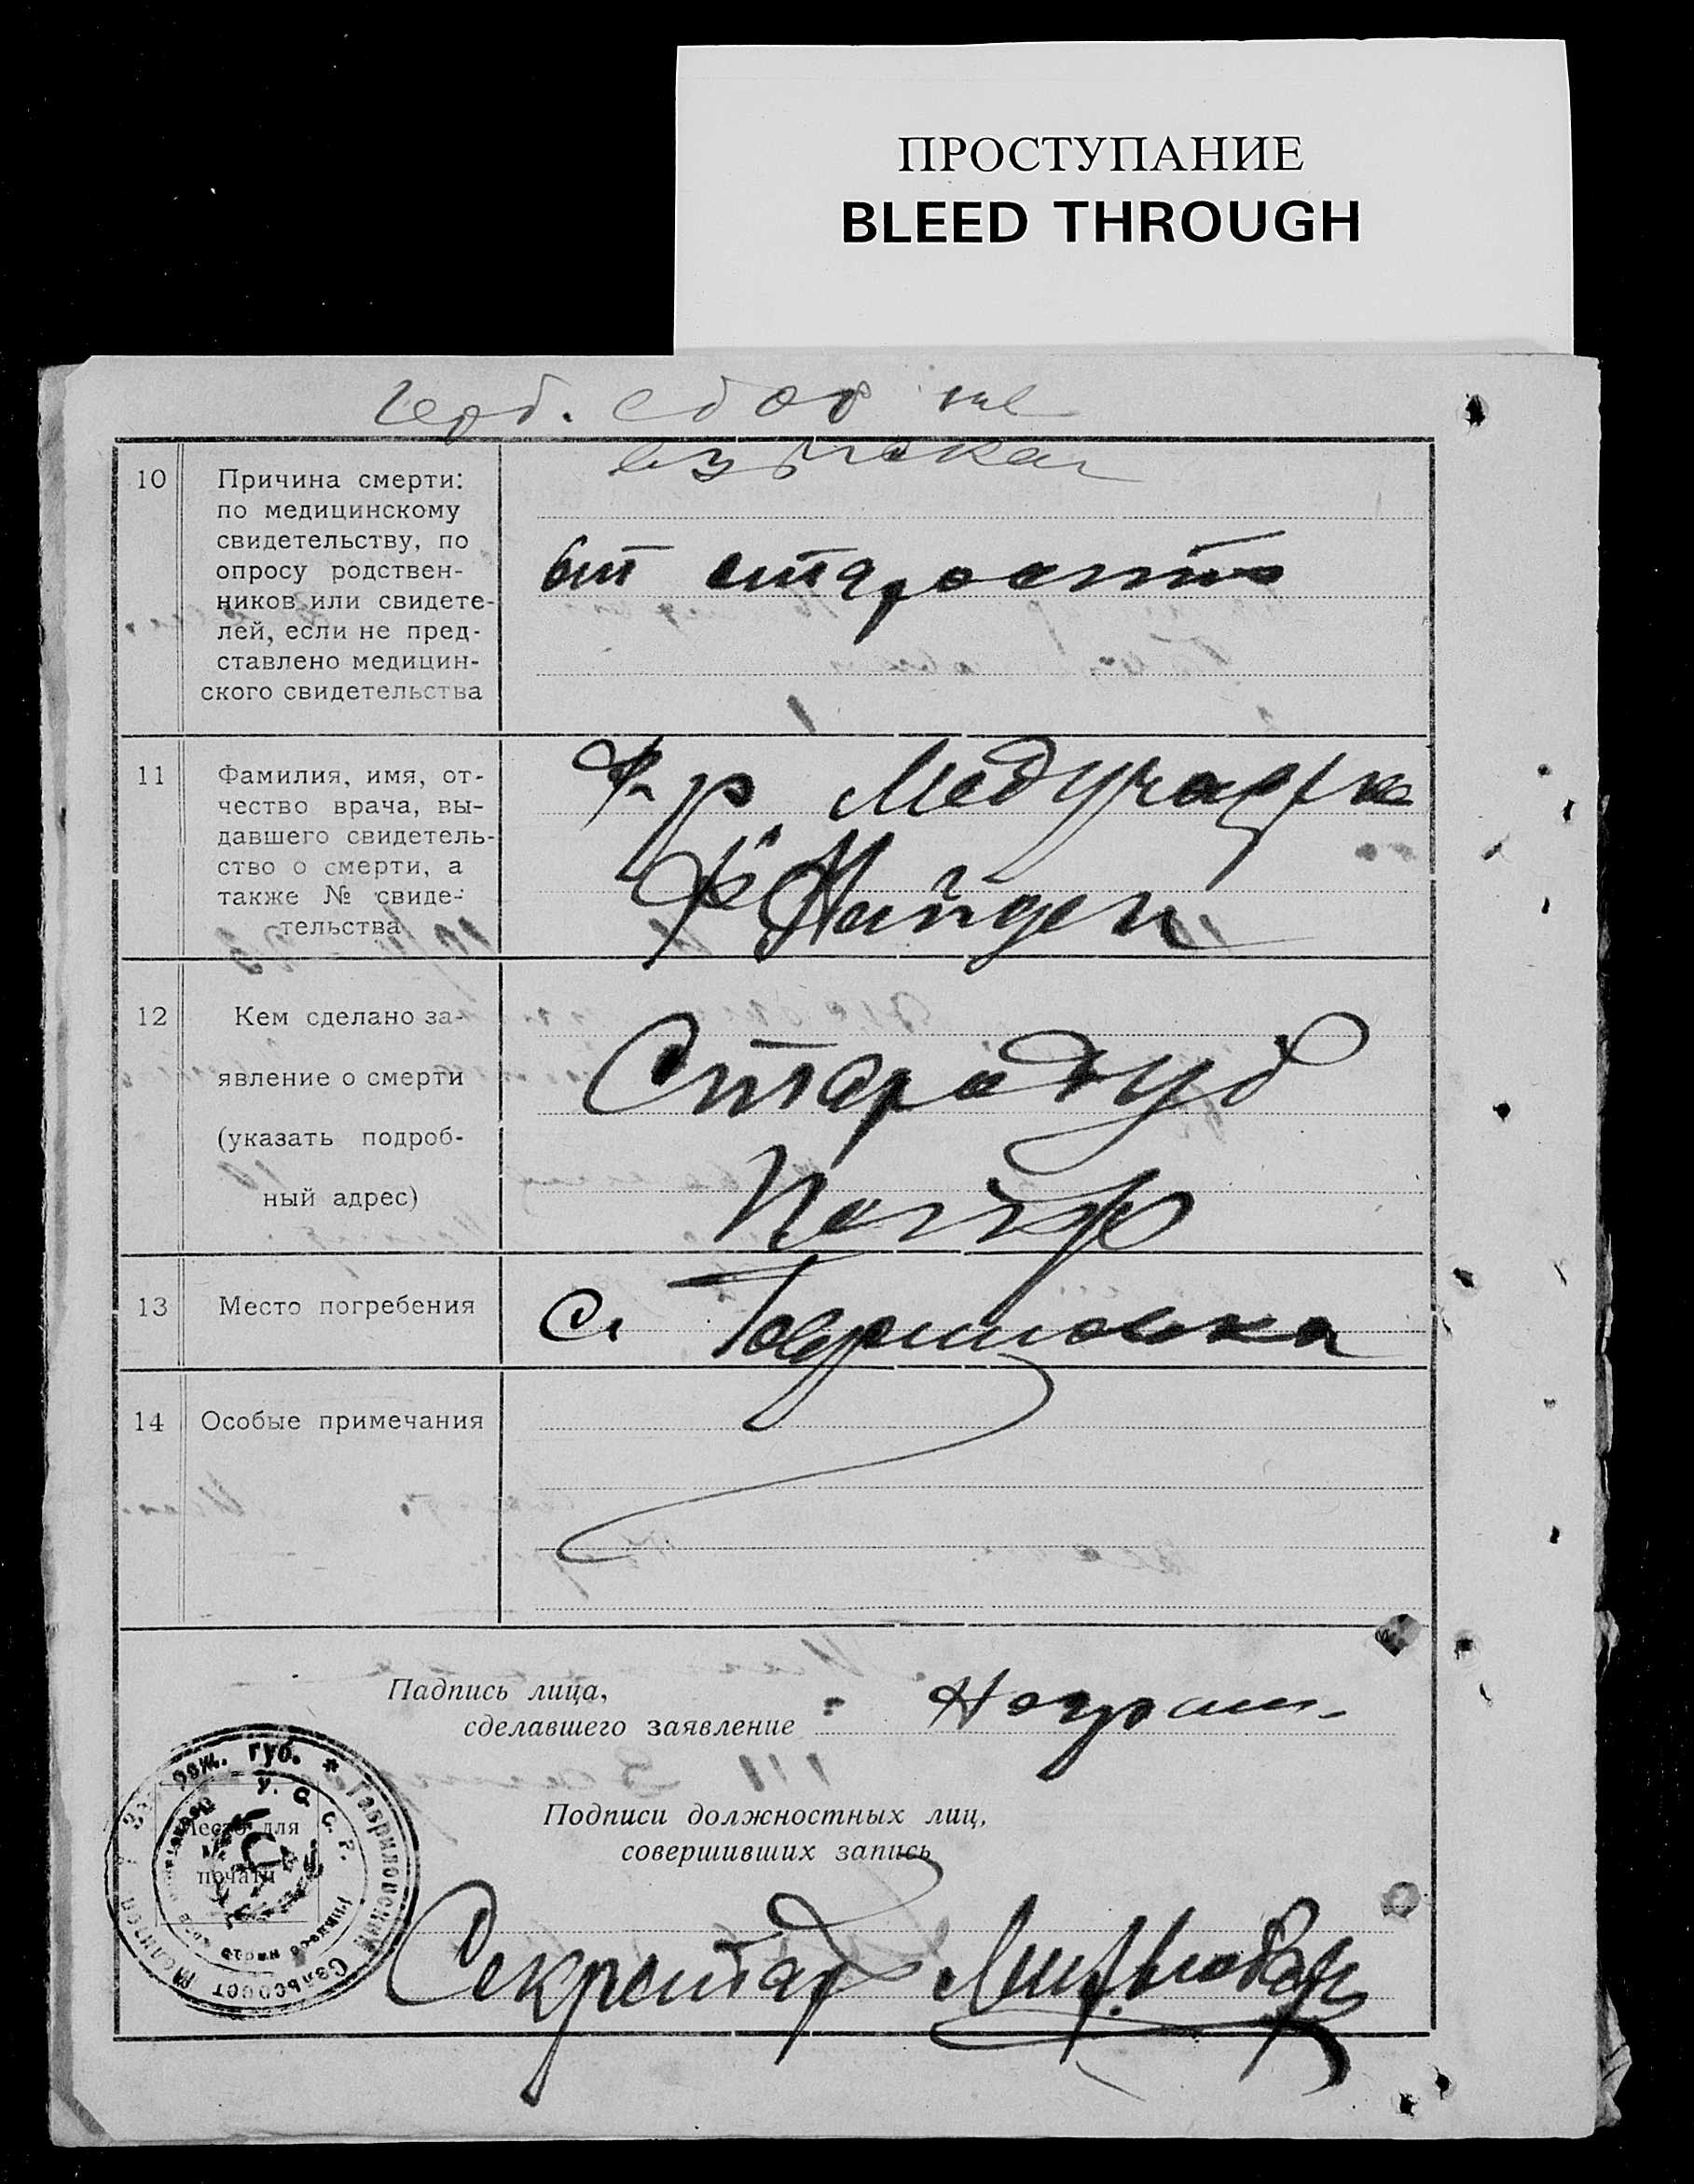 ПРОСТУПАНИЕ
BLEED THROUGH
герб. сбор не
взыскан
10
Причина смерти:
по медицинскому
свидетельству, по
опросу родствен-
ников или свидете-
лей, если не пред-
ставлено медицин-
ского свидетельства
от старости
11
Фамилия, имя, от-
чество врача, вы-
давшего свидетель-
ство о смерти, а
также № свиде-
тельства
Медучастка
12
Кем сделано за-
явление о смерти
(указать подроб-
ный адрес)
Стародуб
13
Место погребения
с. Гавриловка
14
Особые примечания
Падпись лица,
сделавшего заявление
Неграм-
Место для
печати
Подписи должностных лиц,
совершивших запись
Секретарь
губ. * Гавриловский Сельсовет
У. С. С. Р.